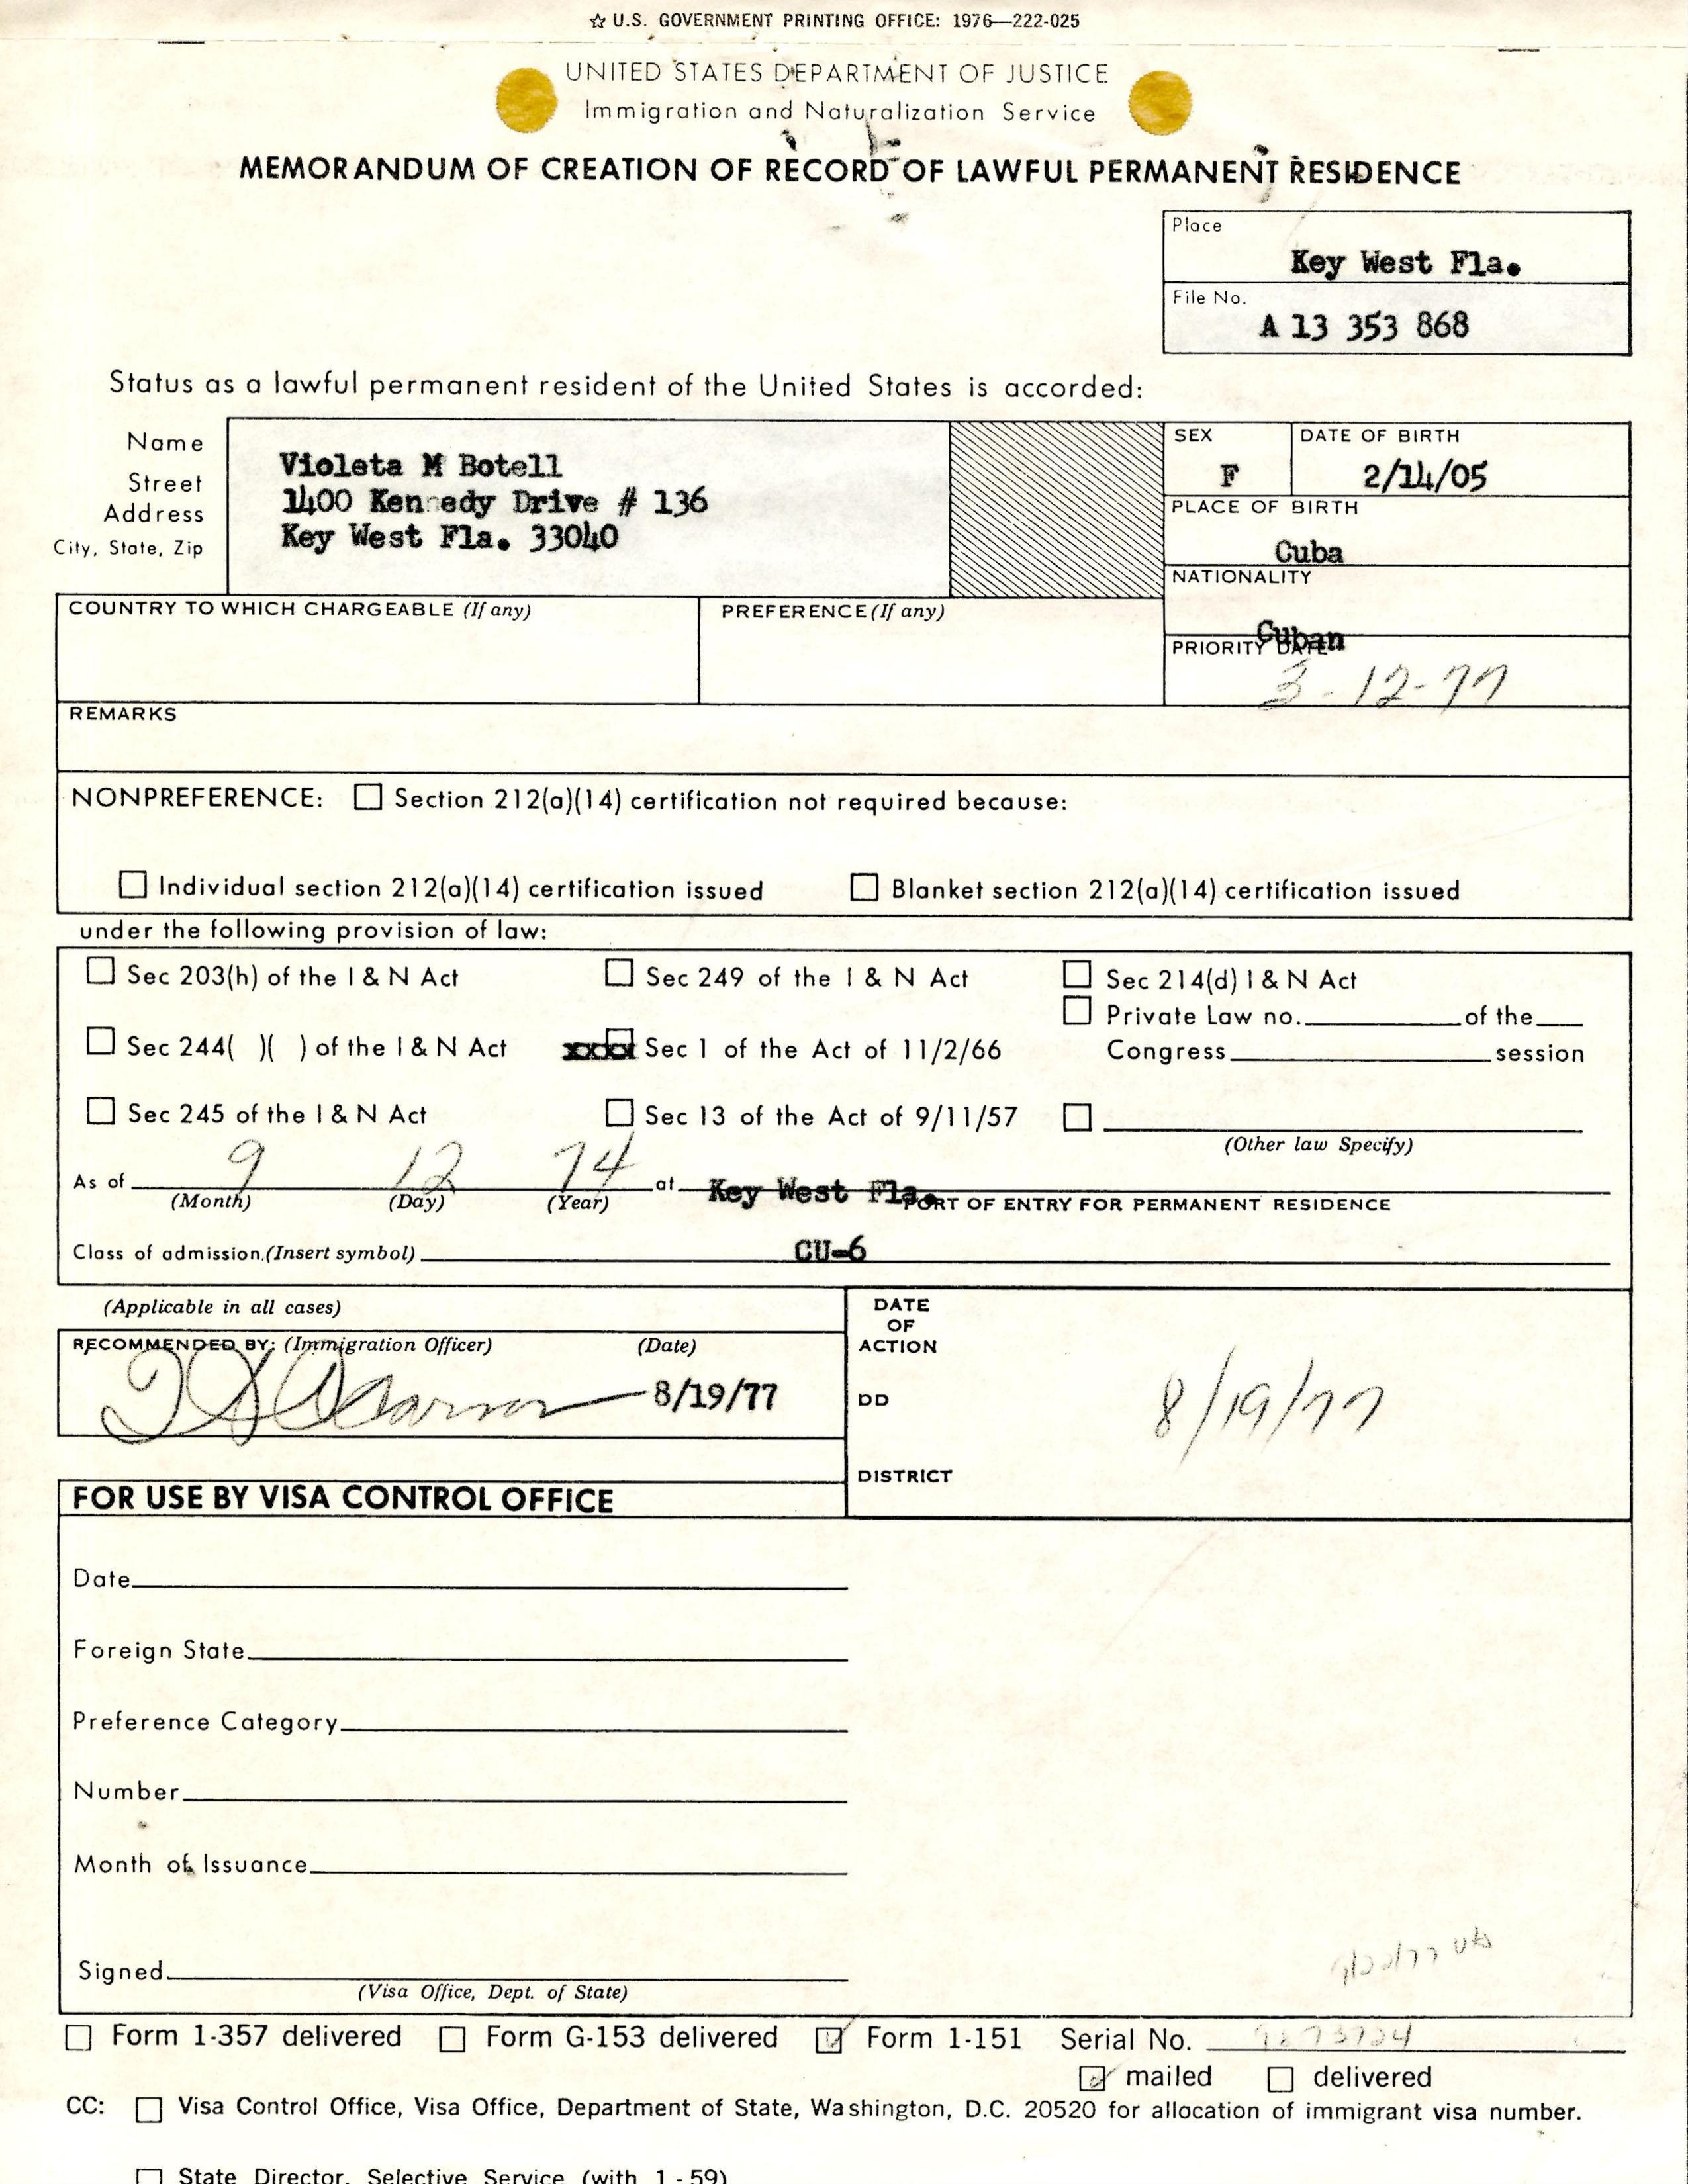 ☆ U.S. GOVERNMENT PRINTING OFFICE: 1976—222-025
UNITED STATES DEPARTMENT OF JUSTICE
Immigration and Naturalization Service
MEMORANDUM OF CREATION OF RECORD OF LAWFUL PERMANENT RESIDENCE
Place
Key West Fla.
File No.
A 13 353 868
Status as a lawful permanent resident of the United States is accorded:
Name
Street
Address
City, State, Zip
Violeta M Botell
1400 Kennedy Drive # 136
Key West Fla. 33040
SEX
F
DATE OF BIRTH
2/14/05
PLACE OF BIRTH
Cuba
NATIONALITY
Cuban
COUNTRY TO WHICH CHARGEABLE (If any)
PREFERENCE (If any)
PRIORITY DATE
3-12-77
REMARKS
NONPREFERENCE: ☐ Section 212(a)(14) certification not required because:
☐ Individual section 212(a)(14) certification issued ☐ Blanket section 212(a)(14) certification issued
under the following provision of law:
☐ Sec 203(h) of the I & N Act ☐ Sec 249 of the I & N Act ☐ Sec 214(d) I & N Act
☐ Private Law no. of the
☐ Sec 244( )( ) of the I & N Act xxxx Sec 1 of the Act of 11/2/66 Congress session
☐ Sec 245 of the I & N Act ☐ Sec 13 of the Act of 9/11/57 ☐
(Other law Specify)
As of 9 12 74 at Key West Fla.
(Month) (Day) (Year) PORT OF ENTRY FOR PERMANENT RESIDENCE
Class of admission.(Insert symbol) CU-6
(Applicable in all cases)
RECOMMENDED BY: (Immigration Officer) (Date)
8/19/77
DATE
OF
ACTION
DD
8/19/77
DISTRICT
FOR USE BY VISA CONTROL OFFICE
Date
Foreign State
Preference Category
Number
Month of Issuance
Signed
(Visa Office, Dept. of State)
☐ Form 1-357 delivered ☐ Form G-153 delivered ☑ Form 1-151 Serial No.
☑ mailed ☐ delivered
CC: ☐ Visa Control Office, Visa Office, Department of State, Washington, D.C. 20520 for allocation of immigrant visa number.
☐ State Director, Selective Service (with 1 - 59)